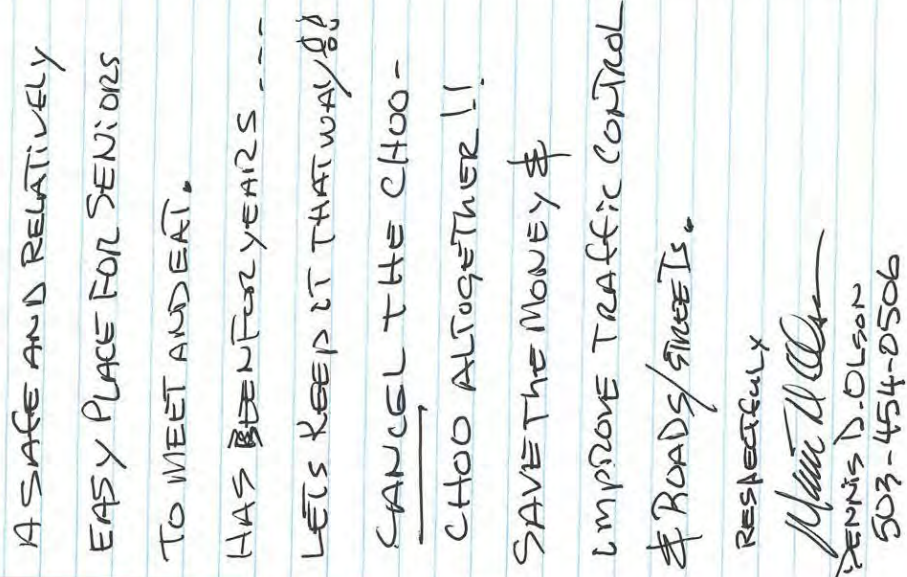 A SAFE AND RELATIVELY
EASY PLACE FOR SENIORS
TO MEET AND EAT.
HAS BEEN FOR YEARS ---
LETS KEEP IT THAT WAY!!
CANCEL THE CHOO-
CHOO ALTOGETHER !!
SAVE THE MONEY &
IMPROVE TRAFFIC CONTROL
& ROADS/STREETS.
RESPECTFULLY
DENNIS D. OLSON
503-454-0506